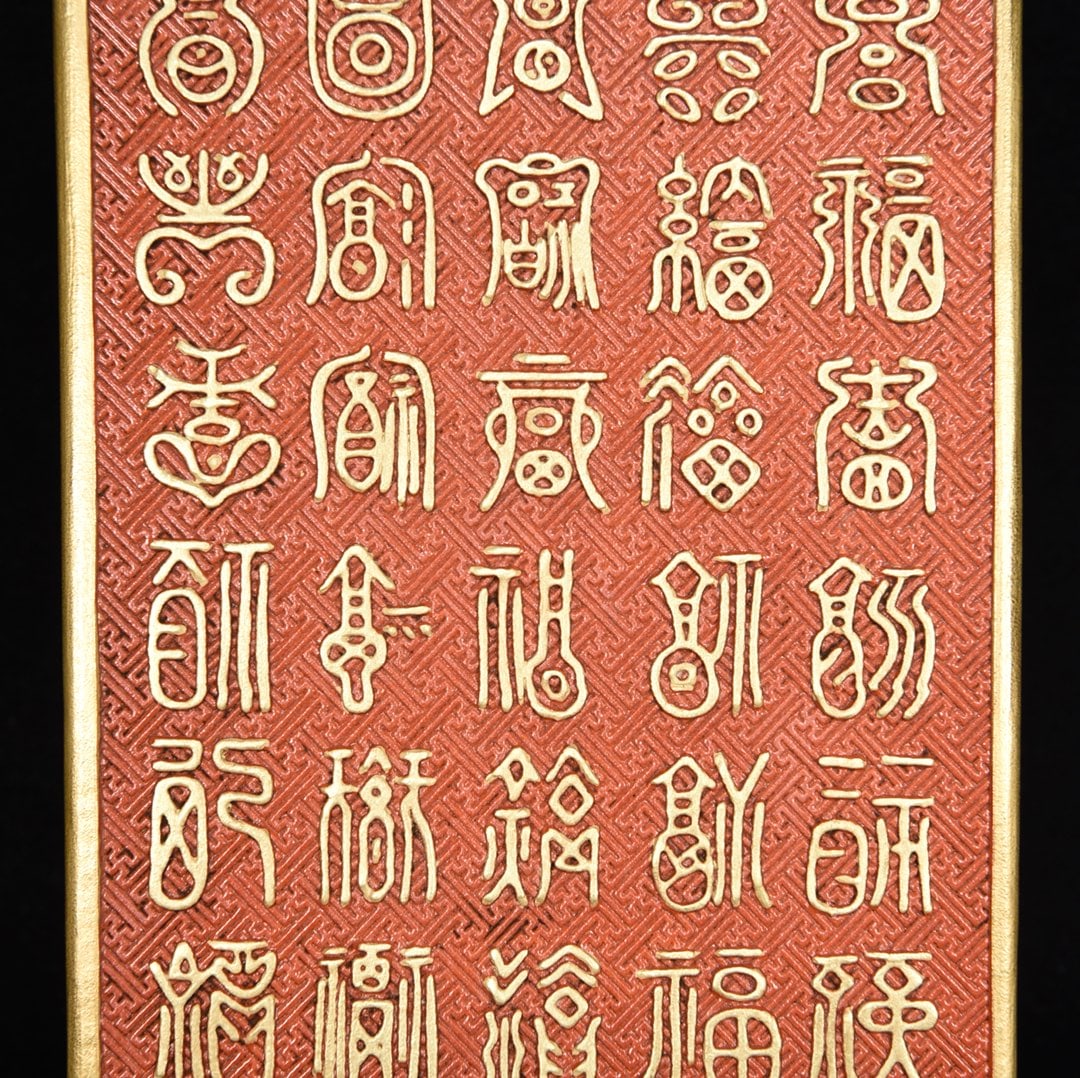 福福福福福福
福福福福福福
福福福福福福
福福福福福福
福福福福福福